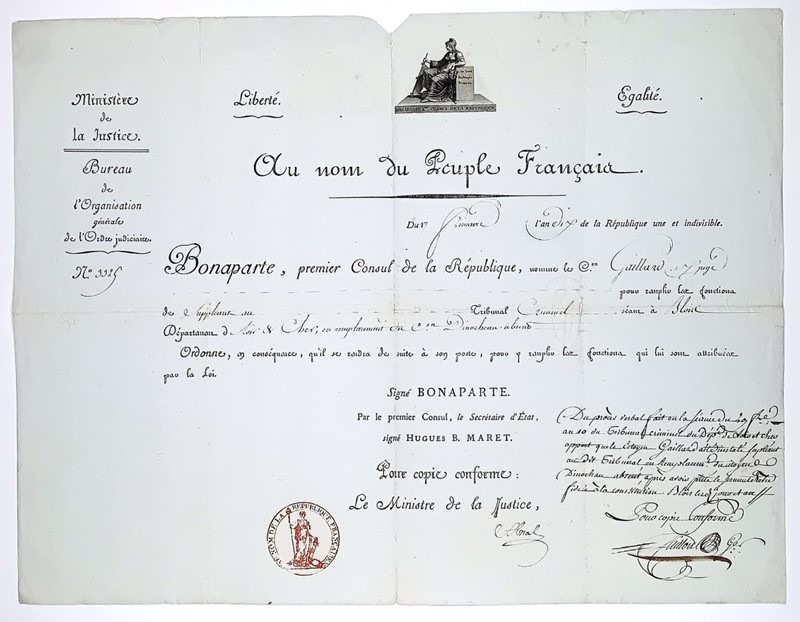 Ministère
de
la Justice.
Bureau
de
l'Organisation
générale
de l'Ordre judiciaire.
Nº 3325
Liberté.
BONAPARTE 1er CONSUL DE LA REPUBLIQUE
Egalité.
Au nom du Peuple Français.
Du 17 frimaire l'an dix de la République une et indivisible.
Bonaparte, premier Consul de la République, nomme le C.en Gaillard juge
pour remplir les fonctions
de Suppléant au Tribunal Criminel séant à Blois
Département de Loir & Cher, en remplacement du C.en Dinocheau absent
Ordonne, en conséquence, qu'il se rendra de suite à son poste, pour y remplir les fonctions qui lui sont attribuées
par la Loi.
Signé BONAPARTE.
Par le premier Consul, le Secrétaire d'État,
signé HUGUES B. MARET.
Pour copie conforme :
Le Ministre de la Justice,
Abrial
AU NOM DE LA REPUBLIQUE FRANÇAISE
Du procès verbal fait en la séance du
an 10 du Tribunal criminel du Dép.t de Loir et cher
appert que le Citoyen Gaillard a été installé suppléant
au dit Tribunal en Remplacem.t du citoyen
Dinochau absent après avoir prêté le
fidélité à la constitution Blois
Pour copie Conforme